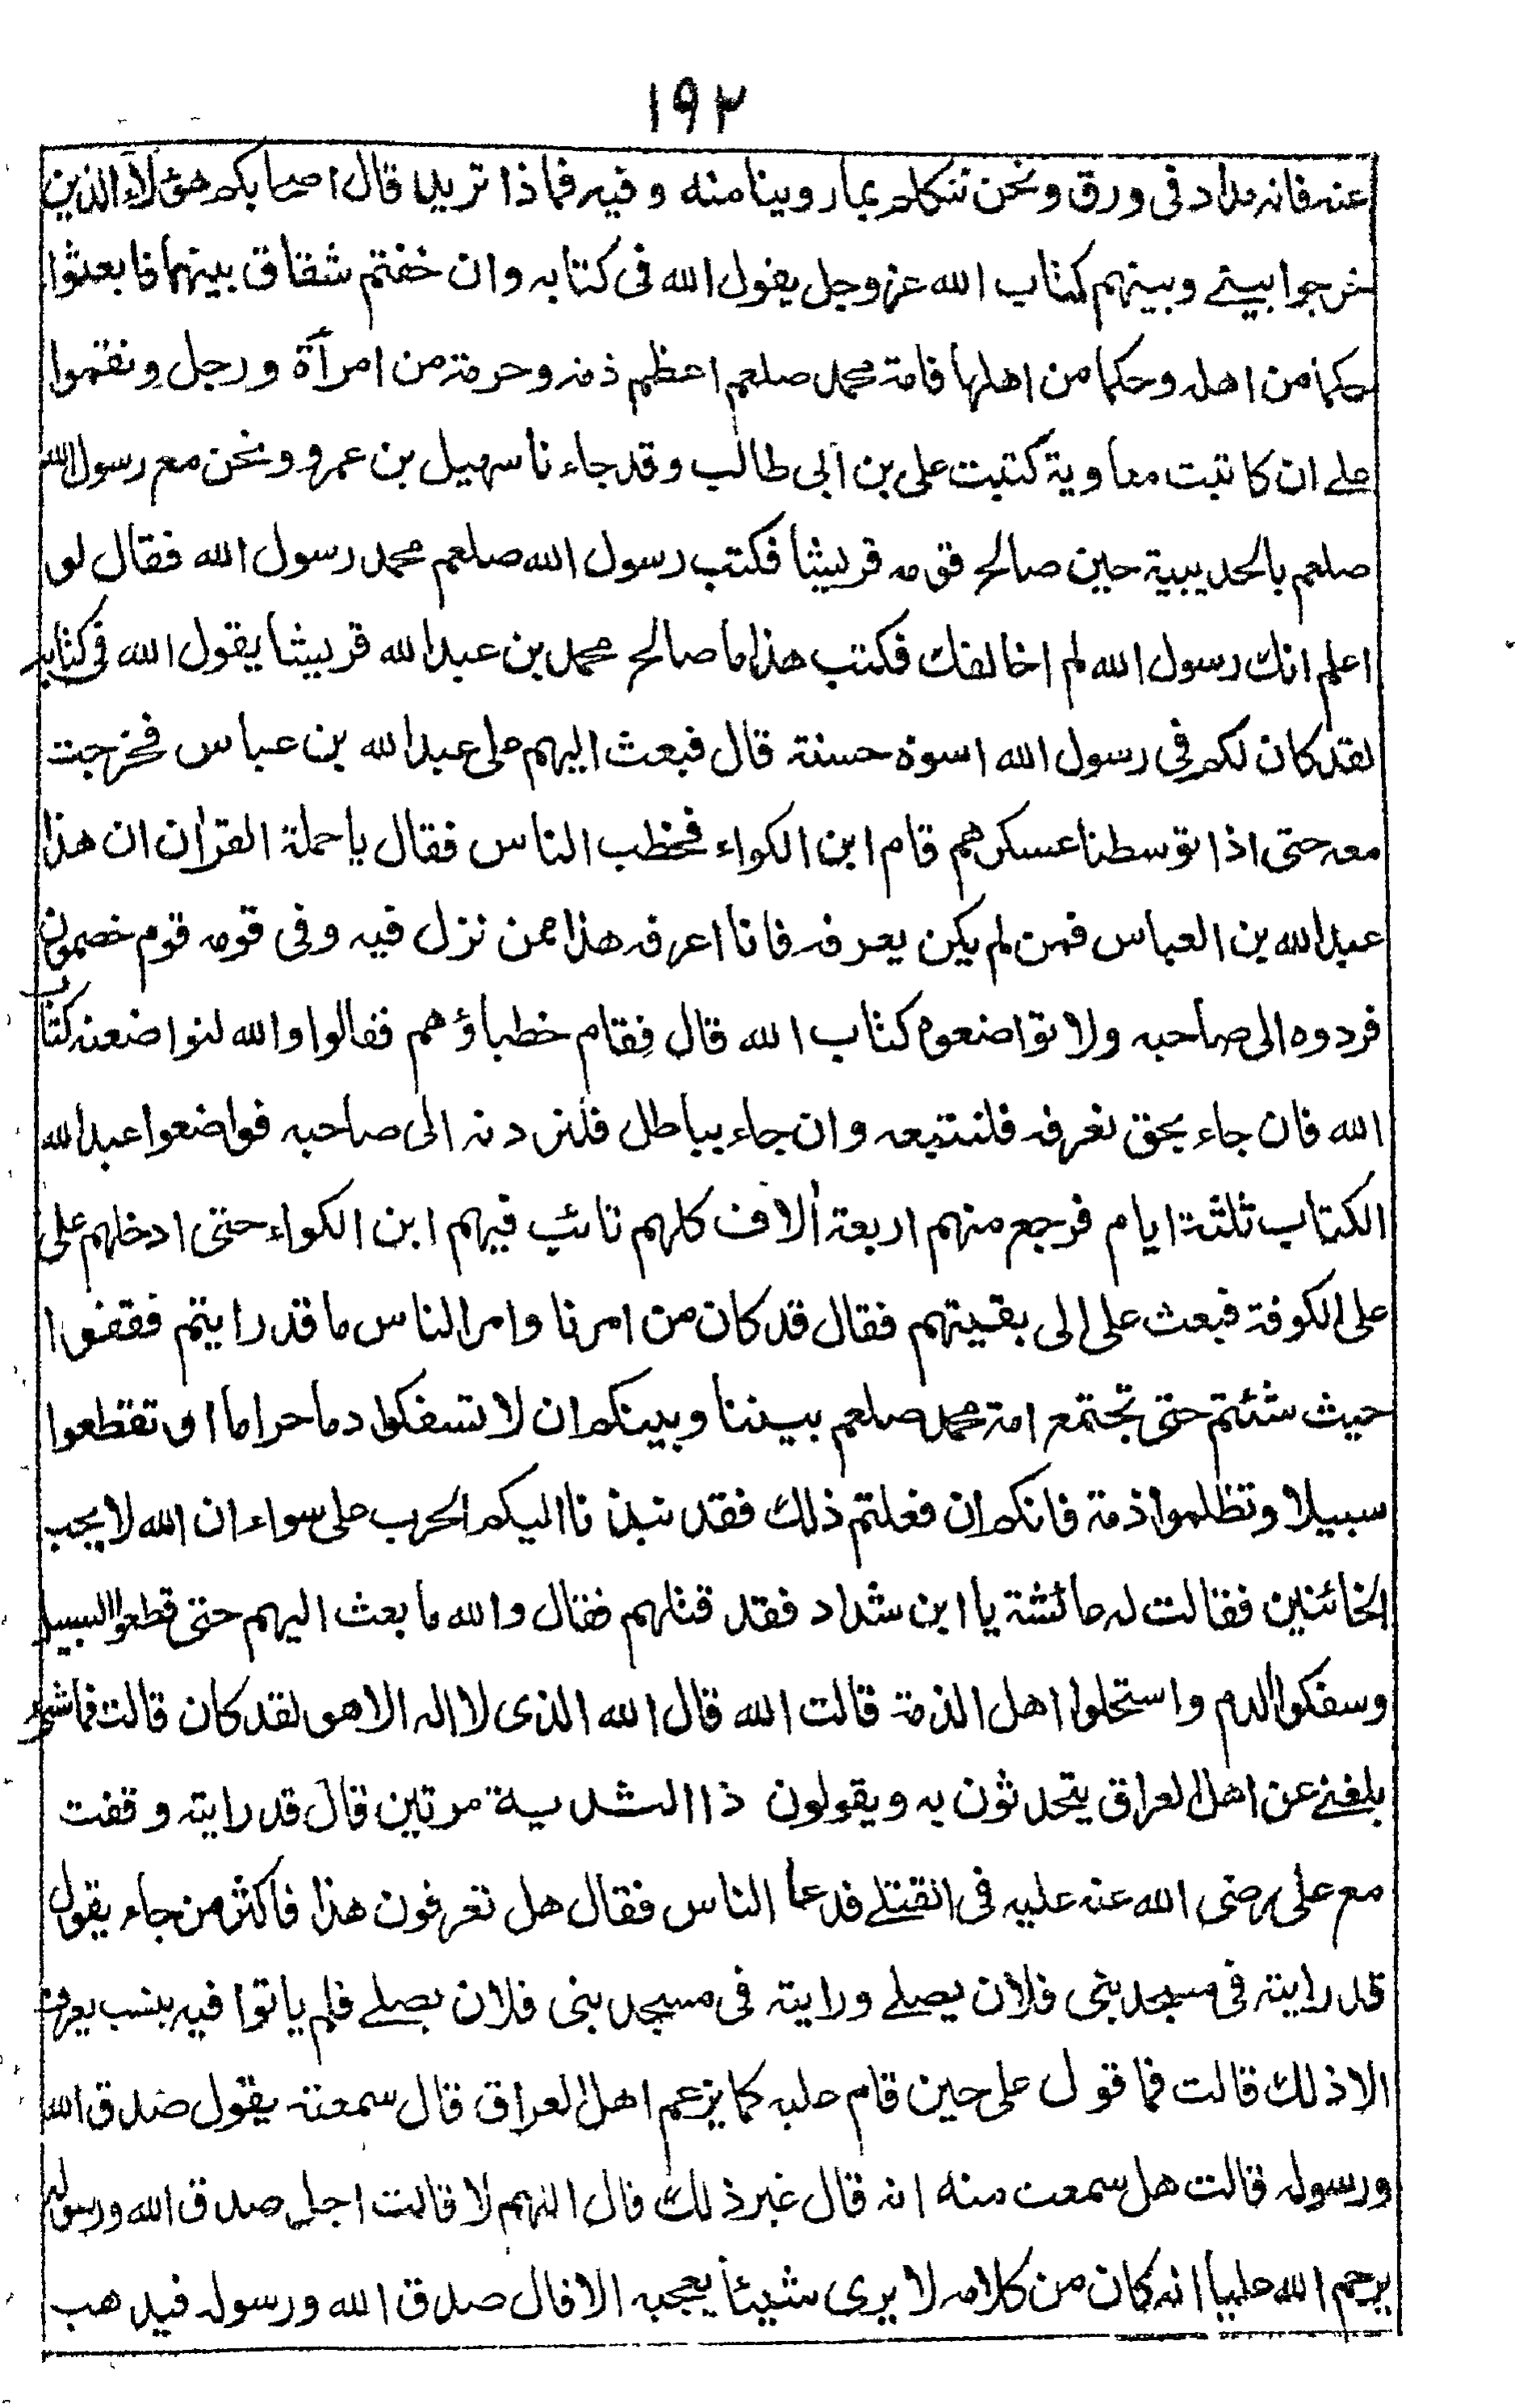 ١٩٢
عنه فانه مداد فى ورق ونحن نتكلم بما روينا منه وفيه فماذا تريد قال اصحابكم هؤلاء الذين
خرجوا بينے وبينهم كتاب الله عز وجل يقول الله فى كتابه وان خفتم شقاق بينهما فابعثوا
حكما من اهله وحكما من اهلها فامة محمد صلعم اعظم ذمة وحرمة من امرأة ورجل ونقموا
علے ان كاتبت معاوية كتبت على بن ابى طالب وقد جاء نا سهيل بن عمرو ونحن مع رسول الله
صلعم بالحديبية حين صالح قومه قريشا فكتب رسول الله صلعم محمد رسول الله فقال لو
اعلم انك رسول الله لم اخالفك فكتب هذا ما صالح محمد بن عبد الله قريشا يقول الله فى كتابه
لقد كان لكم فى رسول الله اسوة حسنة قال فبعث اليهم على عبد الله بن عباس فخرجت
معه حتى اذا توسطنا عسكرهم قام ابن الكواء فخطب الناس فقال يا حملة القران ان هذا
عبد الله بن العباس فمن لم يكن يعرفه فانا اعرفه هذا ممن نزل فيه وفى قومه قوم خصمون
فردوه الى صاحبه ولا تواضعوه كتاب الله قال فقام خطباؤهم فقالوا والله لنواضعنه كتاب
الله فان جاء بحق نعرفه فلنتبعه وان جاء بباطل فلنردنه الى صاحبه فواضعوا عبد الله
الكتاب ثلثة ايام فرجع منهم اربعة ألاف كلهم تائب فيهم ابن الكواء حتى ادخلهم على
على الكوفة فبعث على الى بقيتهم فقال قد كان من امرنا وامر الناس ما قد رايتم فقفوا
حيث شئتم حتى تجتمع امة محمد صلعم بيننا وبينكم ان لا تسفكوا دما حراما او تقطعوا
سبيلا وتظلموا ذمة فانكم ان فعلتم ذلك فقد نبذ نا اليكم الحرب على سواء ان الله لا يحب
الخائنين فقالت له عائشة يا ابن شداد فقد قتلهم فقال والله ما بعث اليهم حتى قطعوا السبيل
وسفكوا الدم واستحلوا اهل الذمة قالت الله قال الله الذى لا اله الا هو لقد كان قالت فما شئ
بلغنے عن اهل العراق يتحدثون به ويقولون ذا الشدية مرتين قال قد رايته وقفت
مع على رضى الله عنه عليه فى القتلے فدعا الناس فقال هل تعرفون هذا فاكثر من جاء يقول
قد رايته فى مسجد بنى فلان يصلے ورايته فى مسجد بنى فلان يصلے فلم ياتوا فيه بنسب يعرف
الا ذلك قالت فما قول على حين قام عليه كما يزعم اهل العراق قال سمعته يقول صدق الله
ورسوله قالت هل سمعت منه انه قال غير ذلك قال اللهم لا قالت اجل صدق الله ورسوله
يرحم الله عليا انه كان من كلامه لا يرى شيئا يعجبه الا قال صدق الله ورسوله فيذهب